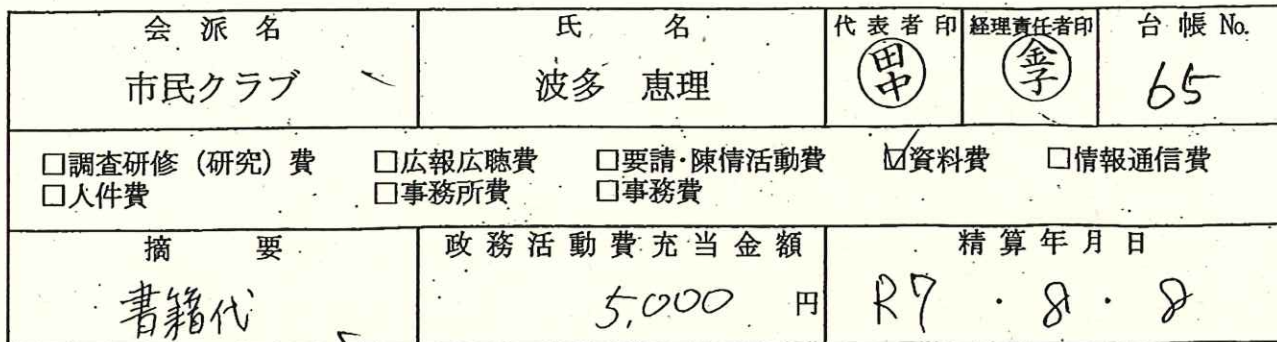 会派名 氏名 代表者印 経理責任者印 台帳No.
市民クラブ 波多 恵理 田中 金子 65
□調査研修（研究）費 □広報広聴費 □要請・陳情活動費 ☑資料費 □情報通信費
□人件費 □事務所費 □事務費
摘要 政務活動費充当金額 精算年月日
書籍代 5,000 円 R7・8・8